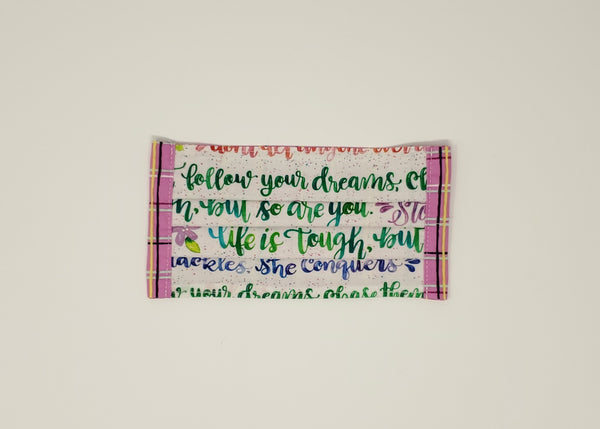 don't let anyone ever
follow your dreams, ch
n, but so are you. Sta
Life is Tough, but
ackles. She Conquers
your dreams, chase them